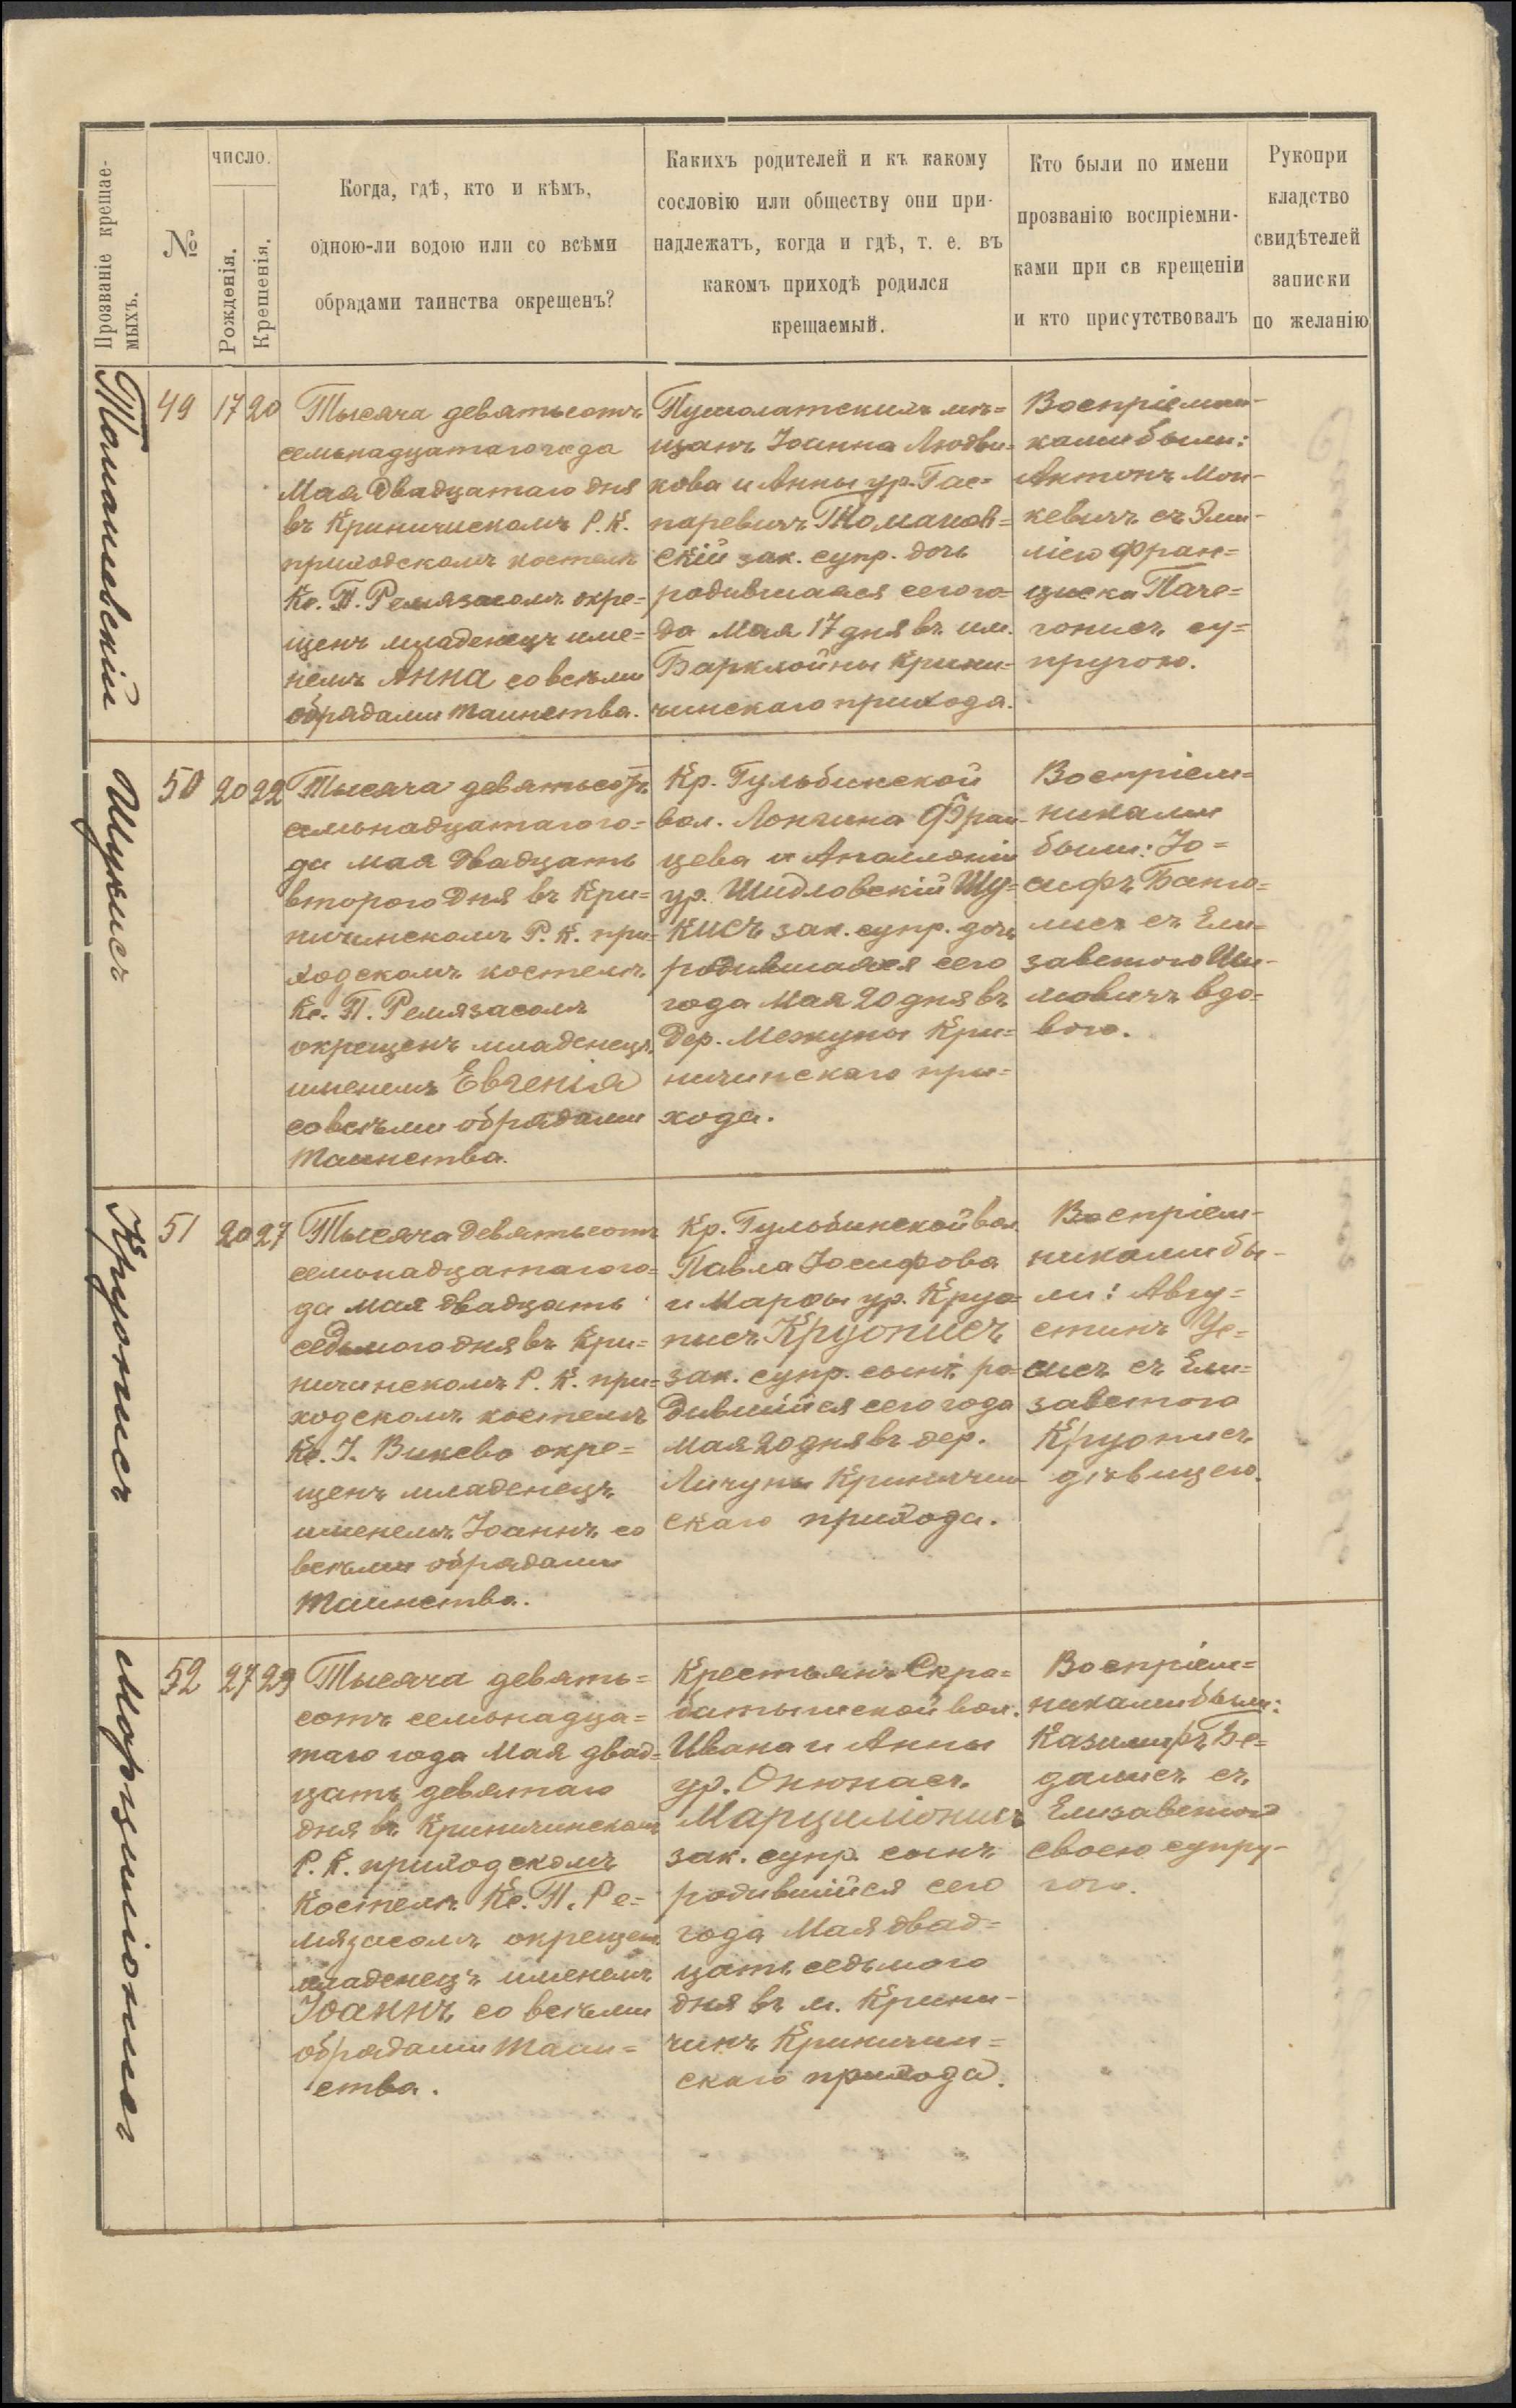 Прозваніе крещае-
мыхъ.
№
число.
Рожденія.
Крещенія.
Когда, гдѣ, кто и кѣмъ,
одною-ли водою или со всѣми
обрядами таинства окрещенъ?
Какихъ родителей и къ какому
сословію или обществу они при-
надлежатъ, когда и гдѣ, т. е. въ
какомъ приходѣ родился
крещаемый.
Кто были по имени
прозванію воспріемни-
ками при св крещеніи
и кто присутствовалъ
Рукопри
кладство
свидѣтелей
записки
по желанію
Томашевскій
49
17
20
Тысяча девятьсотъ
семьнадцатаго года
Мая двадцатаго дня
въ Криничискомъ Р. К.
приходскомъ костелѣ
Кс. П. Ремязасомъ окре=
щенъ младенецъ име=
немъ Анна со всѣми
обрядами таинства.
Пушолатскихъ мѣ=
щанъ Іоанна Людви=
кова и Анны ур. Гас=
паревичъ
скій зак. супр. дочь
родившаяся сего го-
да Мая 17 дня въ им.
Барклойны Крини-
чинскаго прихода.
Воспріемни-
ками были:
Антонъ Мон-
кевичъ съ Эми-
ліею Фран=
циска
су=
пругою.
Шукисъ
50
20
22
Тысяча девятьсотъ
семьнадцатаго го=
да мая двадцать
второго дня въ Кри=
ничинскомъ Р. К. при=
ходскомъ костелѣ
Кс. П. Ремязасомъ
окрещенъ младенецъ
именемъ Евгенія
со всѣми обрядами
таинства.
Кр. Гульбинской
вол. Лонгина Фран-
цева и Аполлоніи
ур. Шидловскій Шу=
кисъ зак. супр. дочь
родившаяся сего
года Мая 20 дня въ
дер. Межуны Кри=
ничинскаго при=
хода.
Воспріем=
никами
были: Іо=
сифъ
съ Ели=
заветою
вдо=
вою.
Круописъ
51
20
27
Тысяча девятьсотъ
семьнадцатаго го=
да мая двадцать
седьмого дня въ Кри=
ничинскомъ Р. К. при=
ходскомъ костелѣ
Кс. І. окре=
щенъ младенецъ
именемъ Іоаннъ со
всѣми обрядами
таинства.
Кр. Гульбинской вол.
Павла Іосифова
и Марѳы ур. Круо=
писъ Круописъ
зак. супр. сынъ ро=
дившійся сего года
мая 20 дня въ дер.
Личуны Криничин-
скаго прихода.
Воспріем-
никами бы-
ли: Авгу=
стинъ
съ Ели=
заветою
Круописъ
дѣвицею.
Марцинліонисъ
52
27
29
Тысяча девять=
сотъ семьнадца=
таго года Мая двад=
цать девятаго
дня въ Криничинскомъ
Р. К. приходскомъ
костелѣ Кс. П. Ре=
мязасомъ окрещенъ
младенецъ именемъ
Іоаннъ со всѣми
обрядами таин=
ства.
Крестьянъ Скро=
вол.
Ивана и Анны
ур.
Марцинліонисъ
зак. супр. сынъ
родившійся сего
года Мая двад=
цать седьмого
дня въ м. Крини-
чинъ Криничин=
скаго прихода.
Воспріем=
никами были:
Казимиръ Бе=
далисъ съ
Елизаветой
своею супру-
гою.